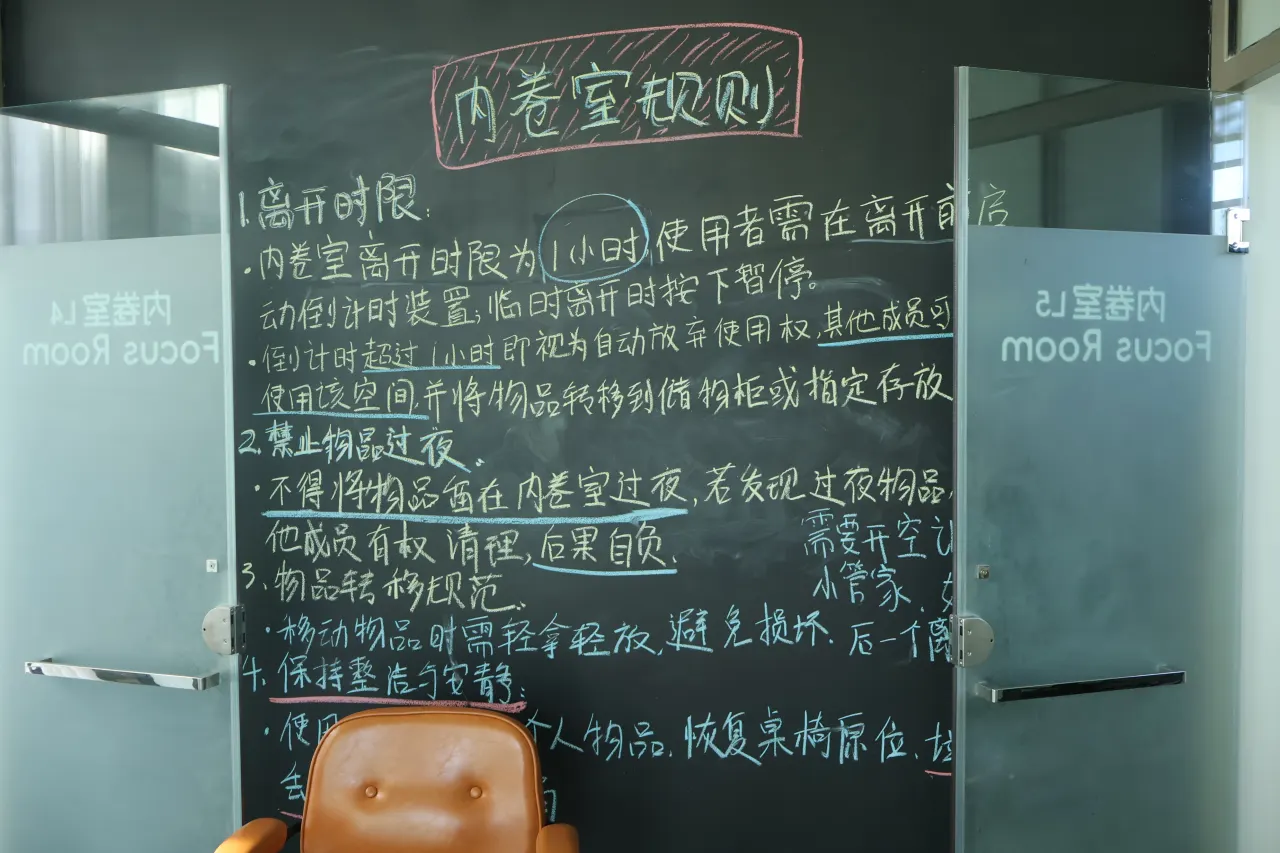 内卷室规则
1.离开时限:
·内卷室离开时限为1小时,使用者需在离开前启
动倒计时装置;临时离开时按下暂停。
·倒计时超过1小时即视为自动放弃使用权,其他成员可
使用该空间,并将物品转移到储物柜或指定存放
2.禁止物品过夜.
·不得将物品留在内卷室过夜,若发现过夜物品,
他成员有权清理,后果自负.
需要开空
小管家.
3、物品转移规范.
·移动物品时需轻拿轻放,避免损坏.
后一个离
4.保持整洁与安静:
·使用 个人物品,恢复桌椅原位.垃
去
内卷室L4
Focus Room
内卷室L5
Focus Room